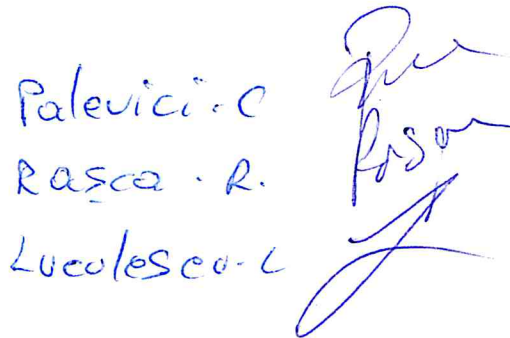 Palevici. C
Rașca. R.
Luculescu-L